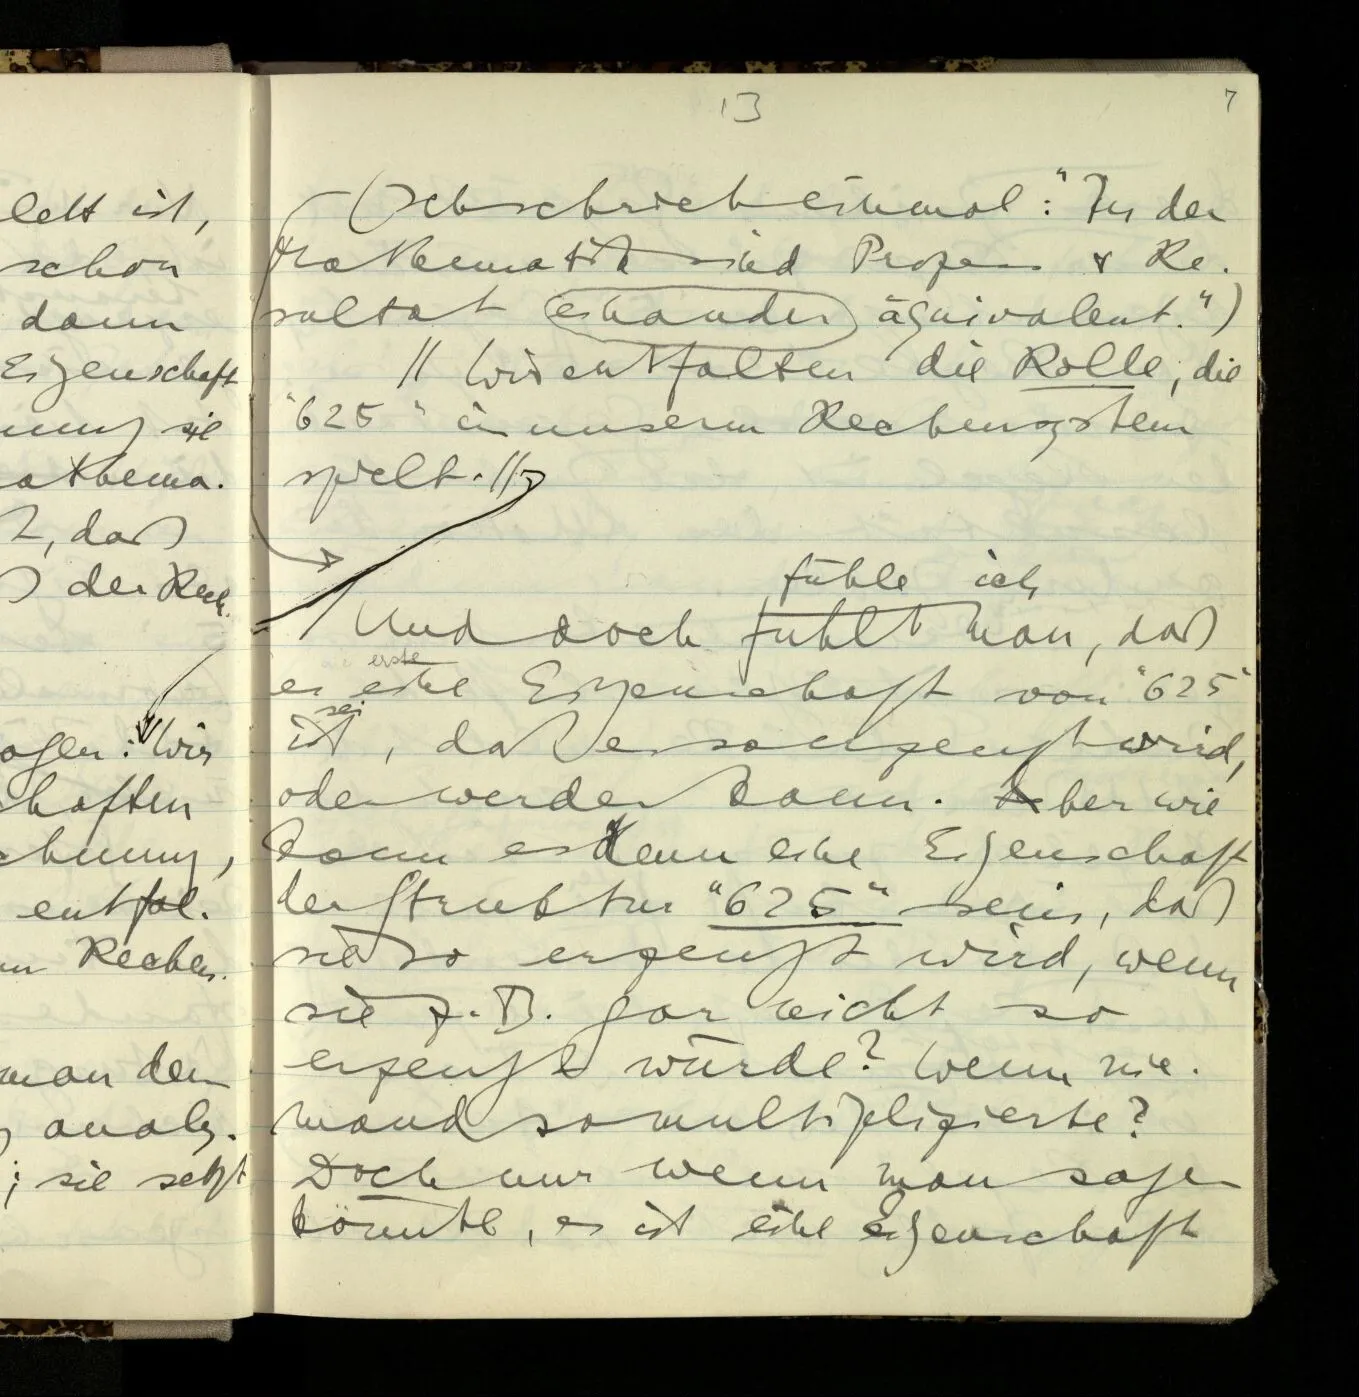 lett ist,
schon
dann
Eigenschaft
nung sie
athema-
, daß
der Rech-
sagen: Wir
haften
chnung,
entfal-
Rechen-
man den
analy-
; sie setzt
13
7
(Ich schrieb einmal: "In der
Mathematik sind Prozess & Re-
sultat einander äquivalent.")
// Wir entfalten die Rolle, die
"625" in unserm Rechensystem
spielt. //
fühle ich
Und doch fühlt man, daß
erste
es eine Eigenschaft von "625"
sei
ist, daß es so erzeugt wird,
oder werden kann. Aber wie
kann es denn eine Eigenschaft
der Struktur "625" sein, daß
sie so erzeugt wird, wenn
sie z.B. gar nicht so
erzeugt würde? Wenn nie-
mand so multiplizierte?
Doch nur wenn man sagen
könnte, es ist eine Eigenschaft